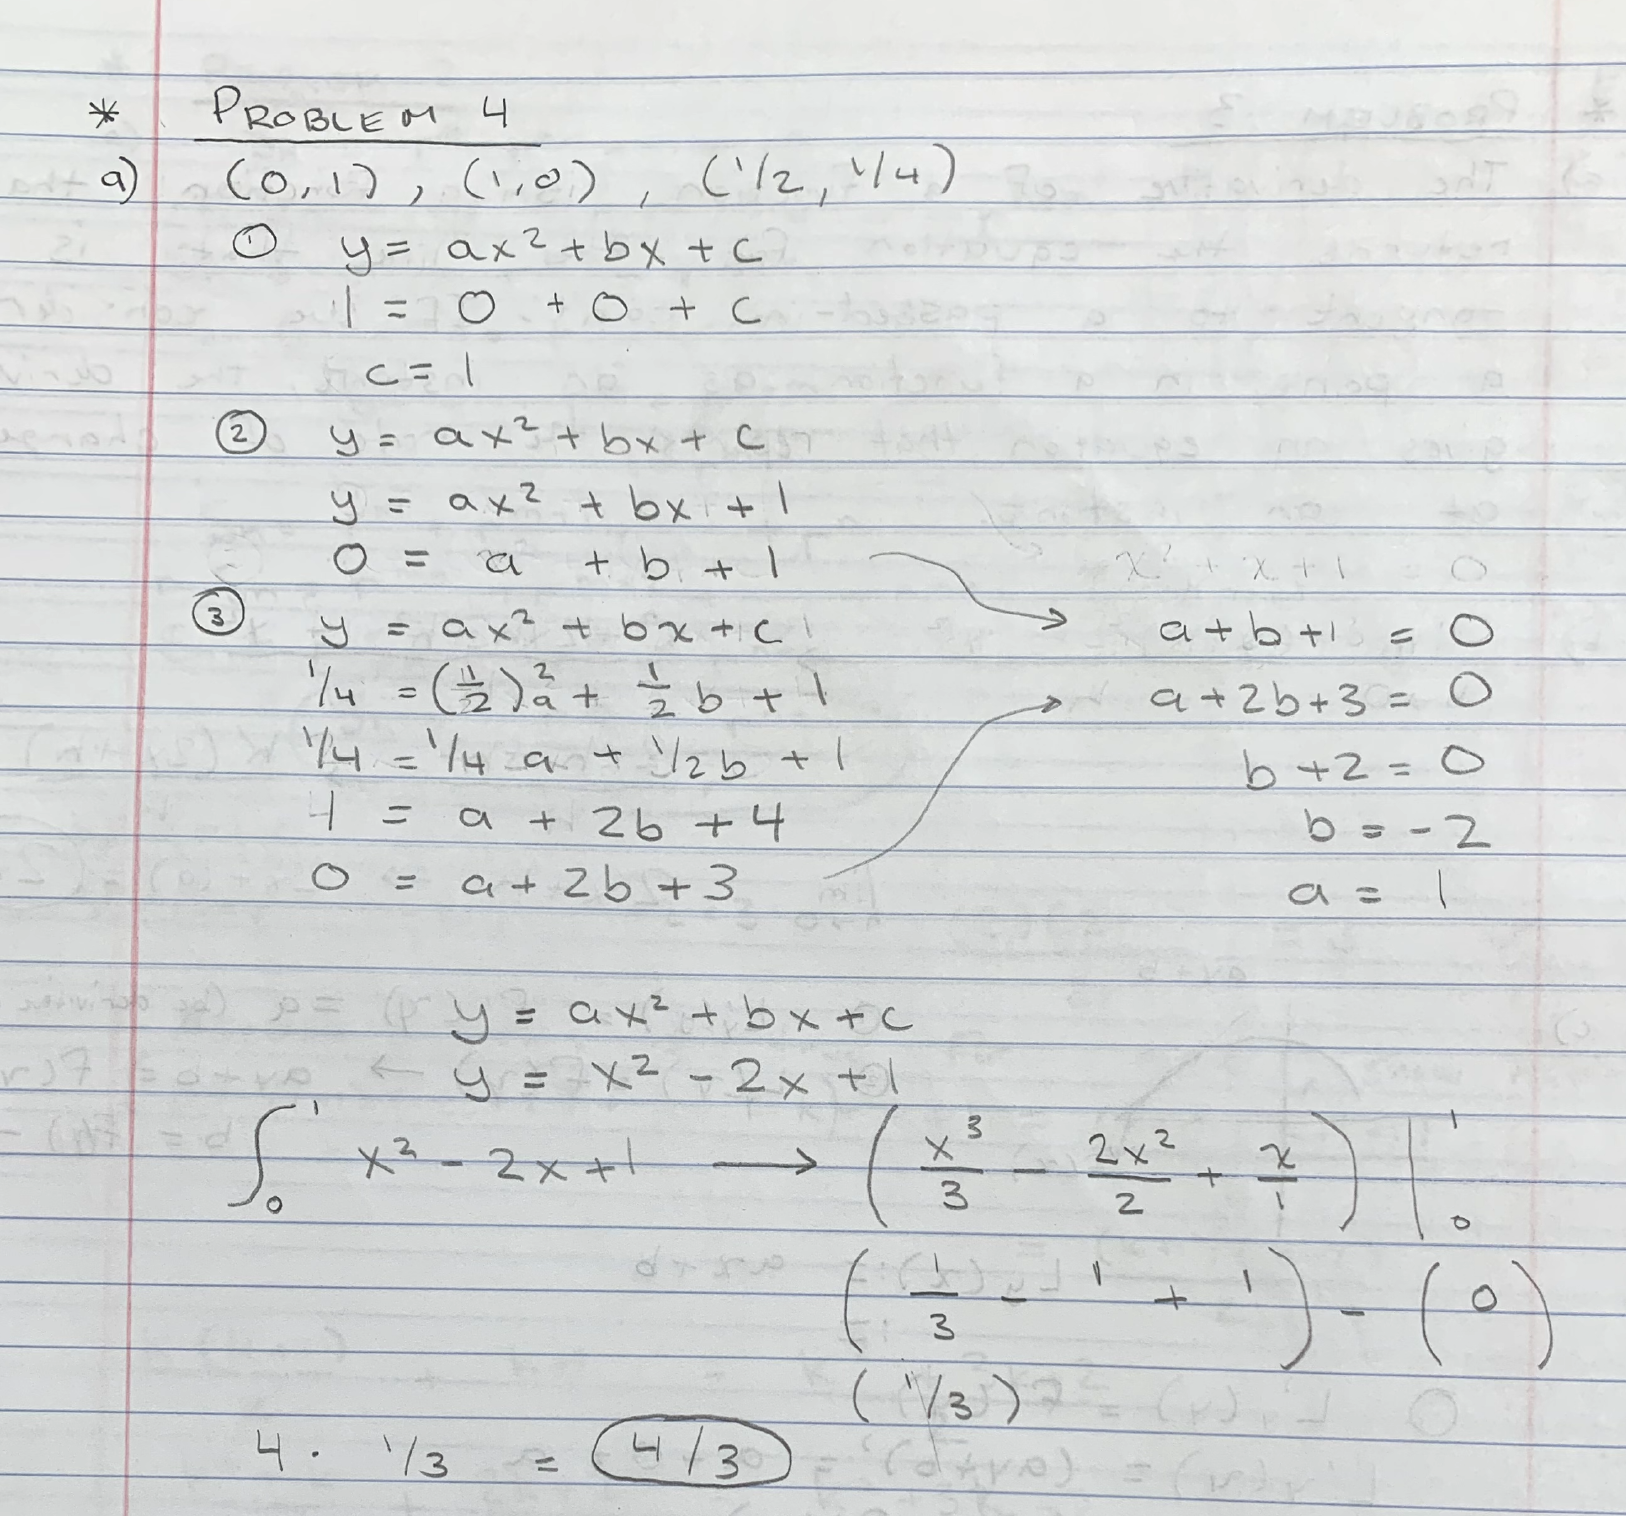 * PROBLEM 4
a) (0,1), (1,0), (1/2, 1/4)
① y = ax² + bx + c
1 = 0 + 0 + c
c = 1
② y = ax² + bx + c
y = ax² + bx + 1
0 = a + b + 1
③ y = ax² + bx + c
1/4 = (1/2)²a + 1/2 b + 1
1/4 = 1/4 a + 1/2 b + 1
1 = a + 2b + 4
0 = a + 2b + 3
a + b + 1 = 0
a + 2b + 3 = 0
b + 2 = 0
b = -2
a = 1
y = ax² + bx + c
y = x² - 2x + 1
∫₀¹ x² - 2x + 1 → (x³/3 - 2x²/2 + x/1) |₀¹
(1/3 - 1 + 1) - (0)
(1/3)
4 · 1/3 = 4/3